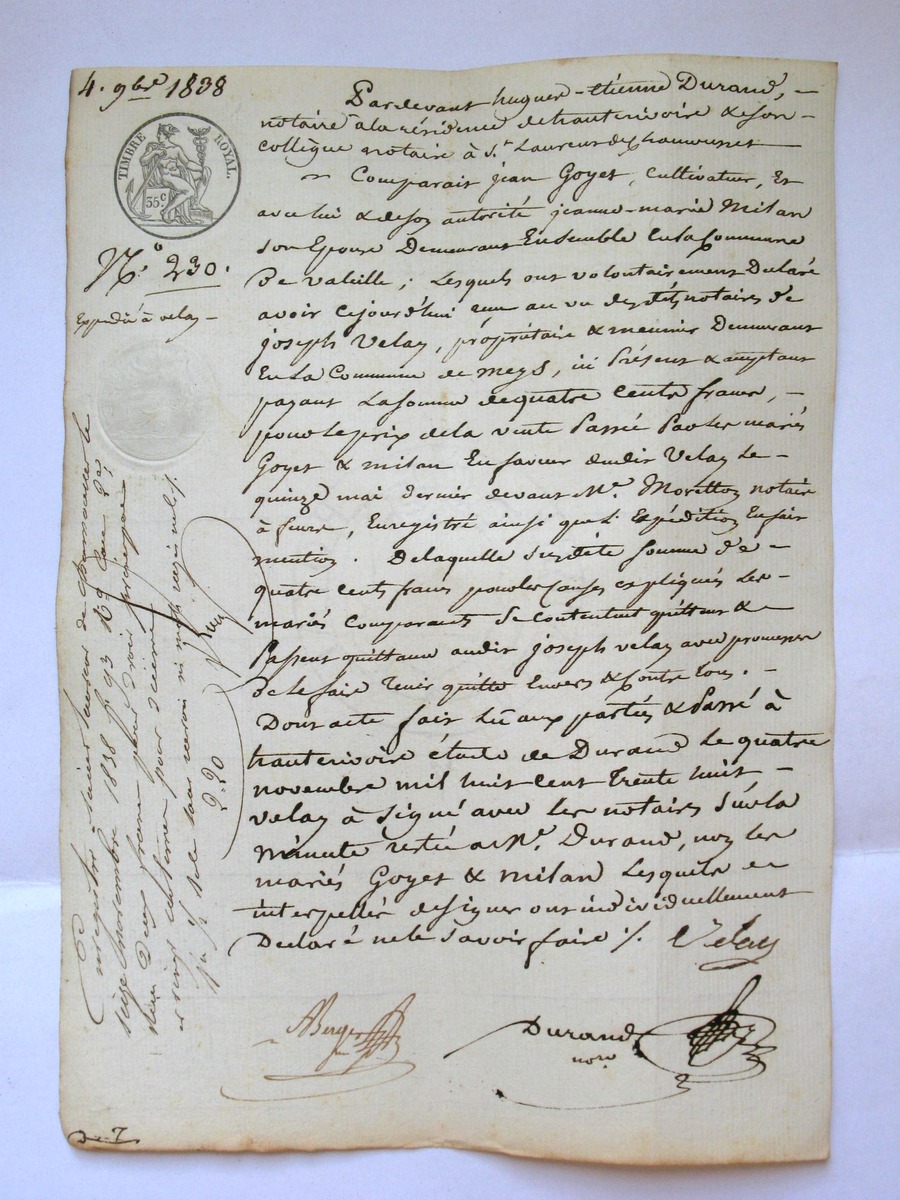 4. 9bre 1838
TIMBRE ROYAL.
35.c
No. 230.
Expédié à velay –
Pardevant hugues-Etienne Durand, –
notaire à la résidence de hauterivoire & son –
collègue notaire à St. Laurent de Chamousset
Comparait jean Goyet, cultivateur, Et
avec lui & de son autorité jeanne-marie Milan
son Epouse Demeurant Ensemble En la Commune
de valeille; Lesquels ont volontairement Déclaré
avoir cejourd'hui reçu au vu desdits notaires de
joseph Velay, propriétaire & meunier Demeurant
En La Commune de meys, ici Présent & acceptant
payant La somme de quatre cents francs, –
pour le prix de la vente Passée Par les mariés
Goyet & milan En faveur dudit Velay Le
quinze mai dernier devant Me. Moretton notaire
à feurs, Enregistré ainsi que l'Expédition En fait
mention. De laquelle susdite somme de –
quatre cents francs pour les causes expliquées Les –
mariés comparants se contentent quittent &
Passent quittance audit joseph velay avec promesse
de le faire tenir quitte Envers & contre tous. –
Dont acte fait Lu aux parties & Passé à
hauterivoire étude de Durand Le quatre
novembre mil huit cent trente huit –
velay à signé avec les notaires sur la
minute restée à Me. Durand, non les
mariés Goyet & milan Lesquels de
interpellés de signer ont individuellement
Déclaré ne le savoir faire ./. Velay
Enregistré à
seize novembre 1838 fo 93 Ro
deux francs pour droit principal
et vingt centimes pour décime
2.20
Berger
Durand
nore